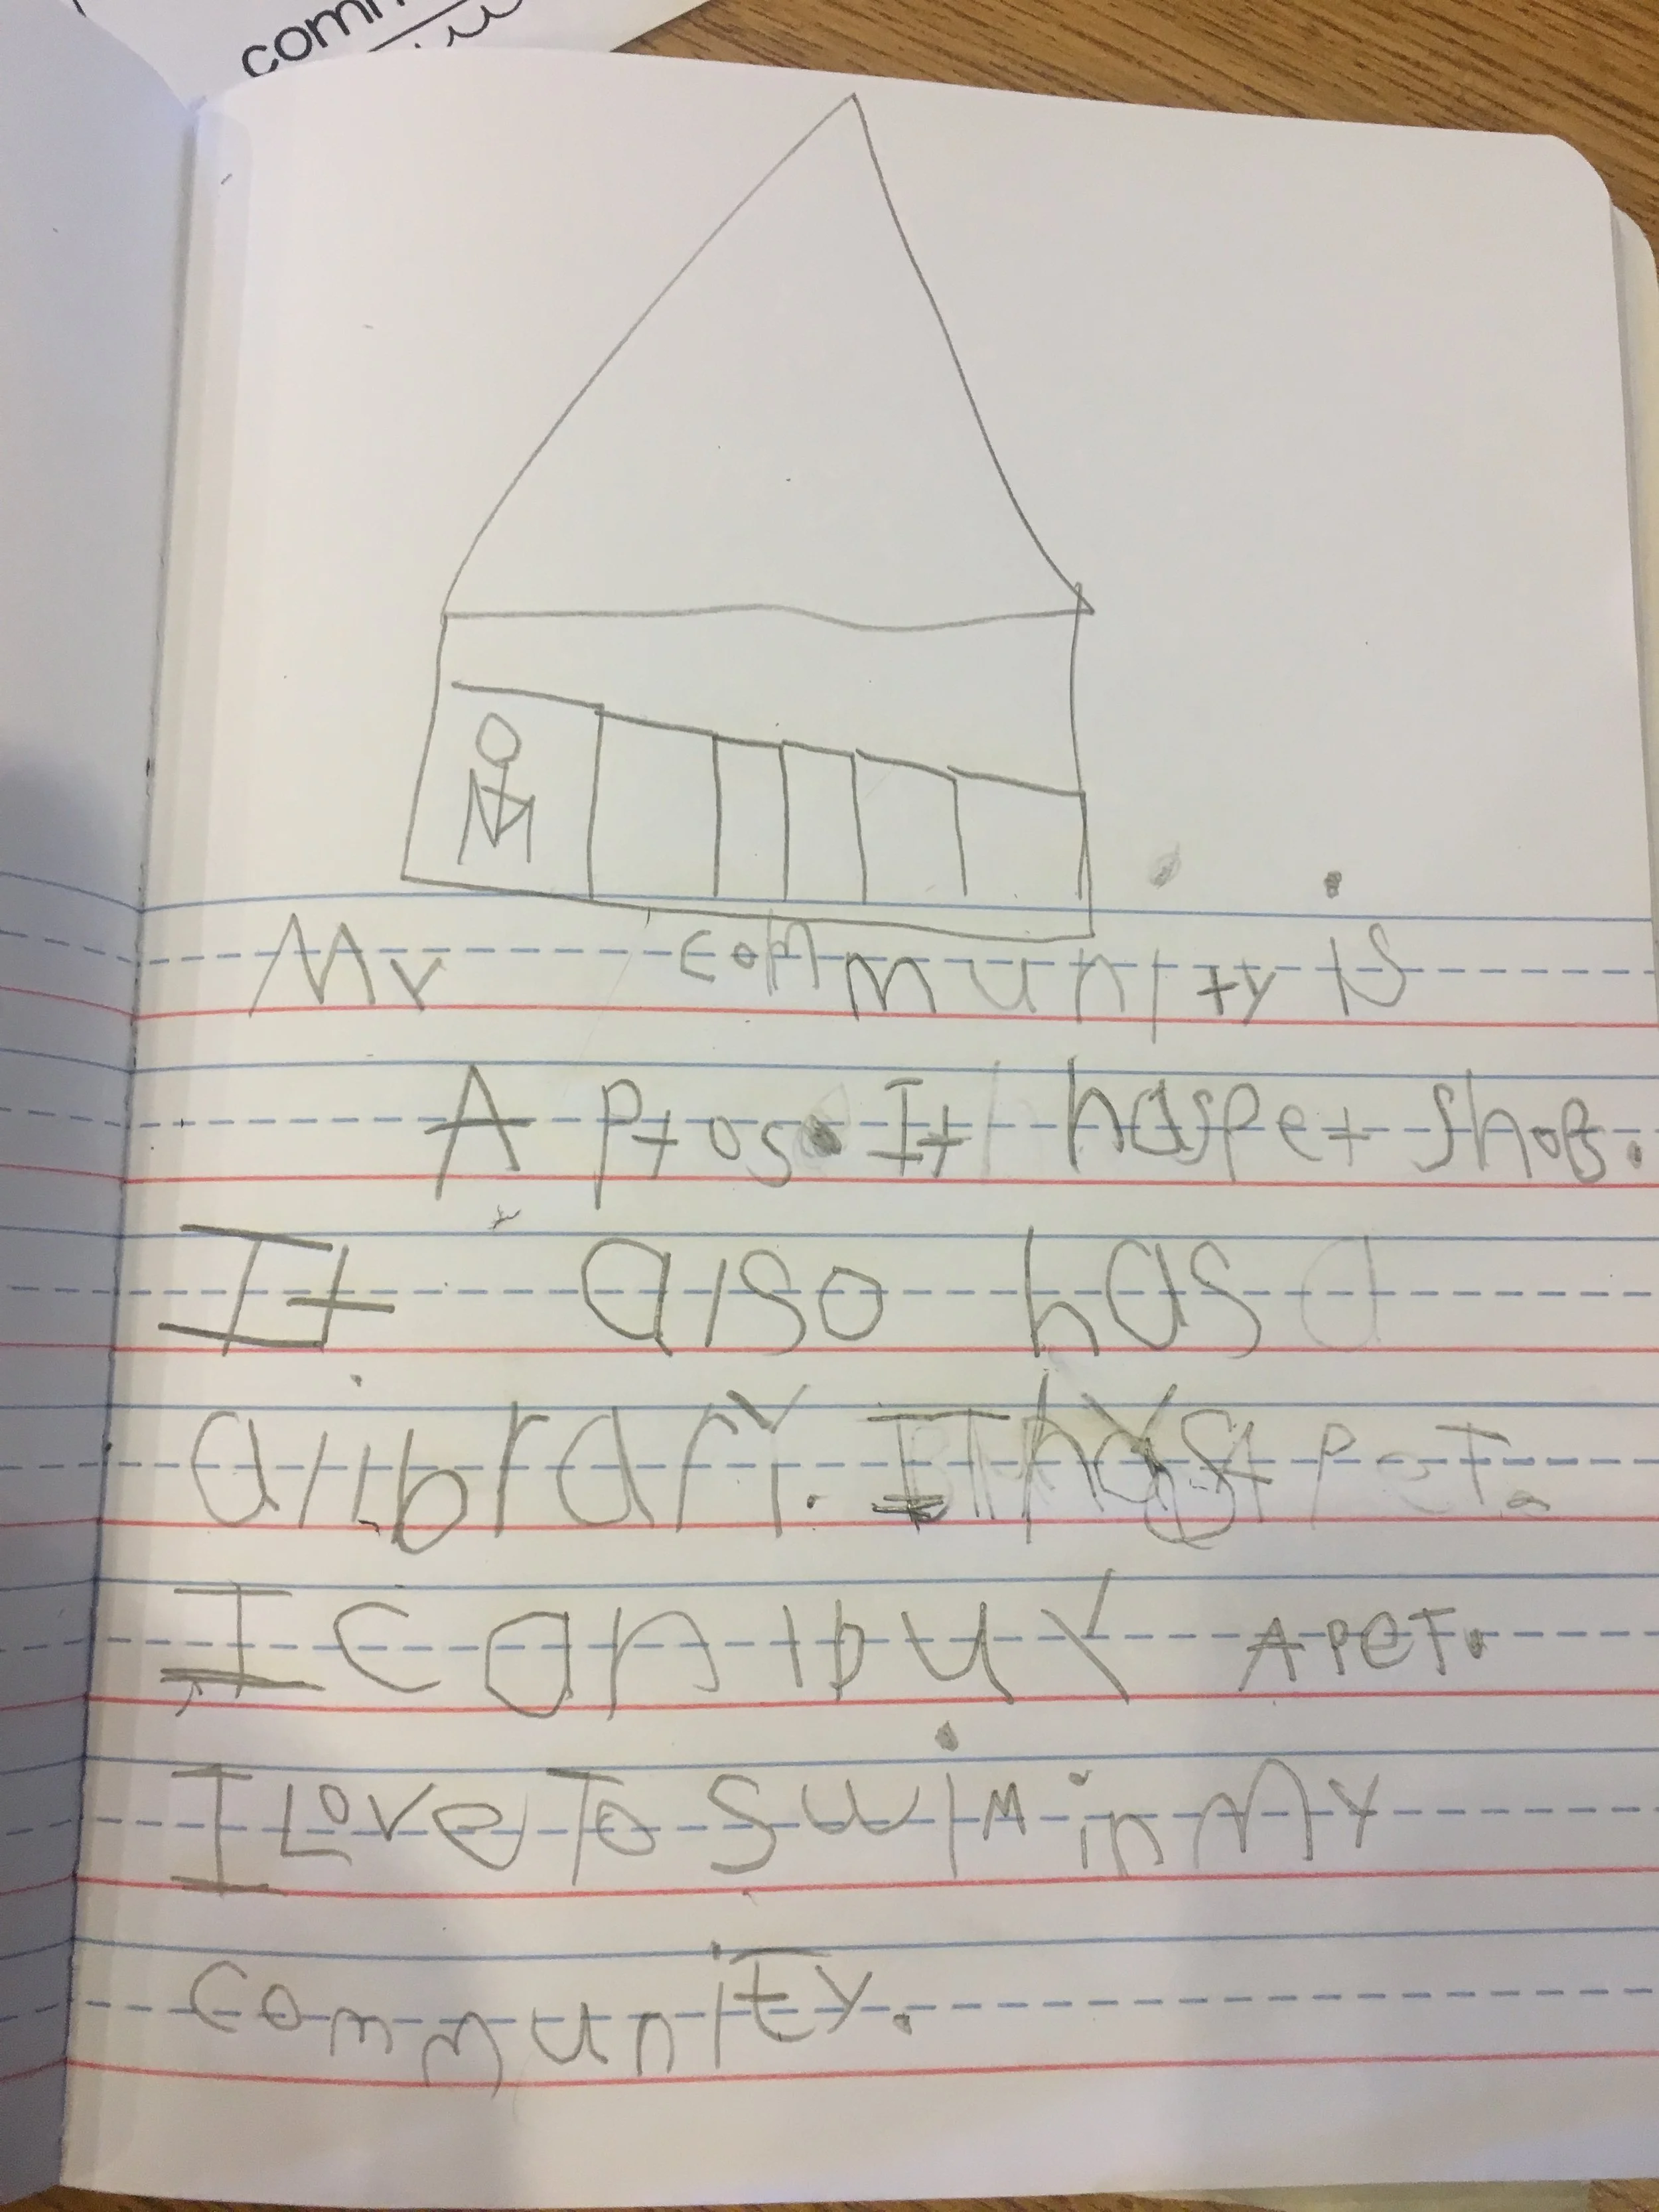 comm
My community is
A ptos. It has pet shops.
It also has a
a library. It has A PeT.
I can buy A PET.
I Love To swim in My
community.